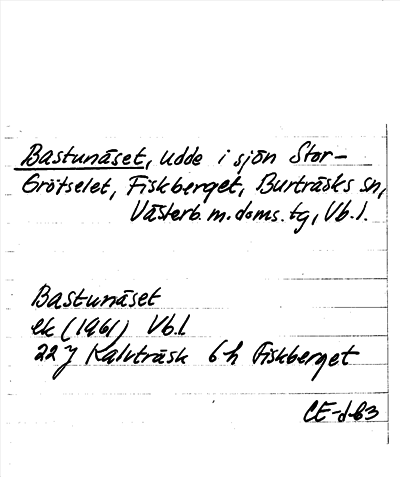 Bastunäset, udde i sjön Stor-
Grötselet, Fiskberget, Burträsks sn,
Västerb. m. doms. tg, Vb. l.
Bastunäset
ek (1961) Vb. l
22 J Kalvträsk 6 h Fiskberget